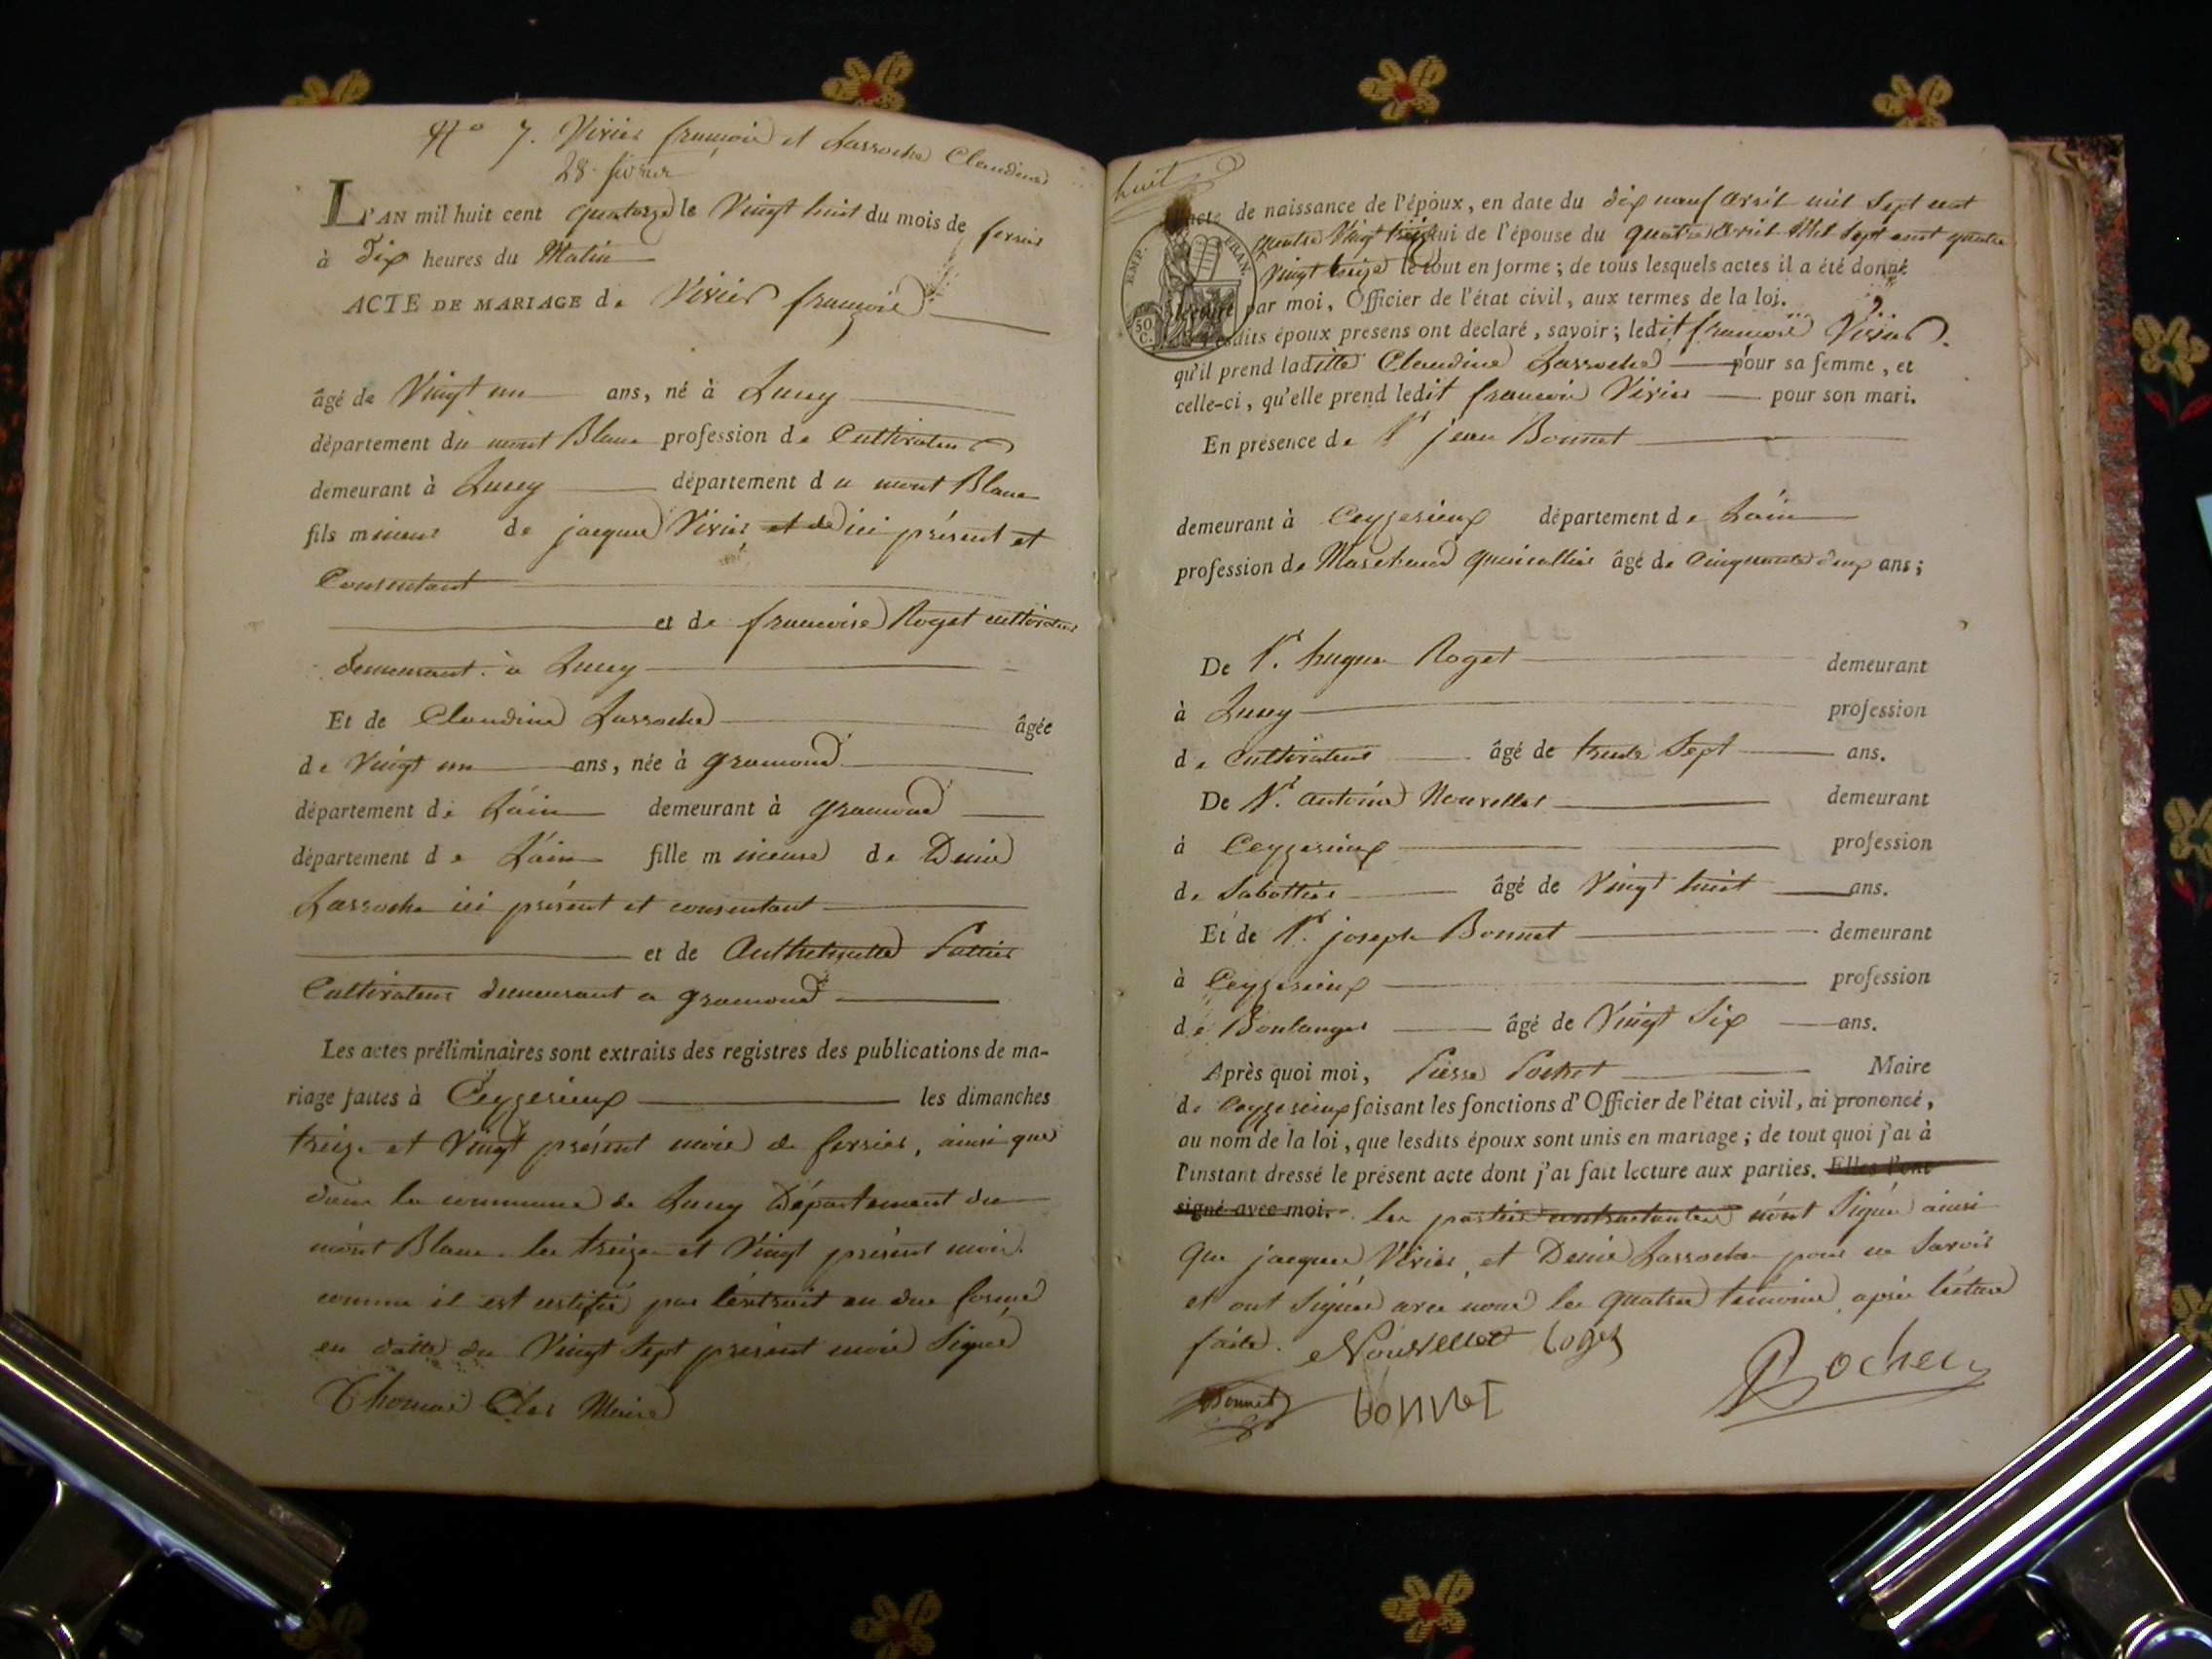 N° 7. Vivier françois et Larroche Claudine
28 février
L'AN mil huit cent quatorze le Vingt huit du mois de fevrier
à Dix heures du Matin
ACTE DE MARIAGE de Vivier françois
âgé de Vingt un ans, né à Lucey
département du mont Blanc profession de Cultivateur
demeurant à Lucey département du mont Blanc
fils mineur de jacque Vivier et de ici présent et
Consentant
et de francoise Roget cultivateur
demeurant à Lucey
Et de Claudine Larroche âgée
de Vingt un ans, née à gramond
département de L'ain demeurant à gramond
département de L'ain fille mineure de Denis
Larroche ici présent et consentant
et de Anthelmette
Cultivateur demeurant a gramond
Les actes préliminaires sont extraits des registres des publications de ma-
riage faites à Ceyzerieux les dimanches
treize et Vingt présent mois de fevrier, ainsi que
dans la commune de Lucey Département du
mont Blanc les treize et Vingt présent mois
comme il est certifié par l'extrait en due forme
en datte du Vingt Sept présent mois Signé
Thomas Maire
huit
EMP. FRAN.
50 C.
L'acte de naissance de l'époux, en date du dix neuf avril mil Sept cent
quatre Vingt treize celui de l'épouse du quatre avril Mil Sept cent quatre
Vingt treize le tout en forme ; de tous lesquels actes il a été donné
lecture par moi, Officier de l'état civil, aux termes de la loi.
Lesdits époux présens ont declaré, savoir ; ledit francois Vivier
qu'il prend laditte Claudine Larroche pour sa femme, et
celle-ci, qu'elle prend ledit francois Vivier pour son mari.
En présence de Sr jean Bonnet
demeurant à Ceyzerieux département de L'ain
profession de Marchand quincallier âgé de Cinquante deux ans ;
De Sr. hugue Roget demeurant
à Lucey profession
de Cultivateur âgé de trente Sept ans.
De Sr. antoine Nouvellet demeurant
à Ceyzerieux profession
de Sabottier âgé de Vingt huit ans.
Et de Sr. joseph Bonnet demeurant
à Ceyzerieux profession
de Boulanger âgé de Vingt Six ans.
Après quoi moi, Pierre Pochet Maire
de Ceyzerieux faisant les fonctions d'Officier de l'état civil, ai prononcé,
au nom de la loi, que lesdits époux sont unis en mariage ; de tout quoi j'ai à
l'instant dressé le présent acte dont j'ai fait lecture aux parties. Elles l'ont
signé avec moi. les parties contractantes n'ont Signé ainsi
que jacque Vivier, et Denis Larroche pour ne Savoir
et ont Signés avec nous les quatre témoins après lecture
faite. Nouvellet Roget
Bonnet bonnet Pochet